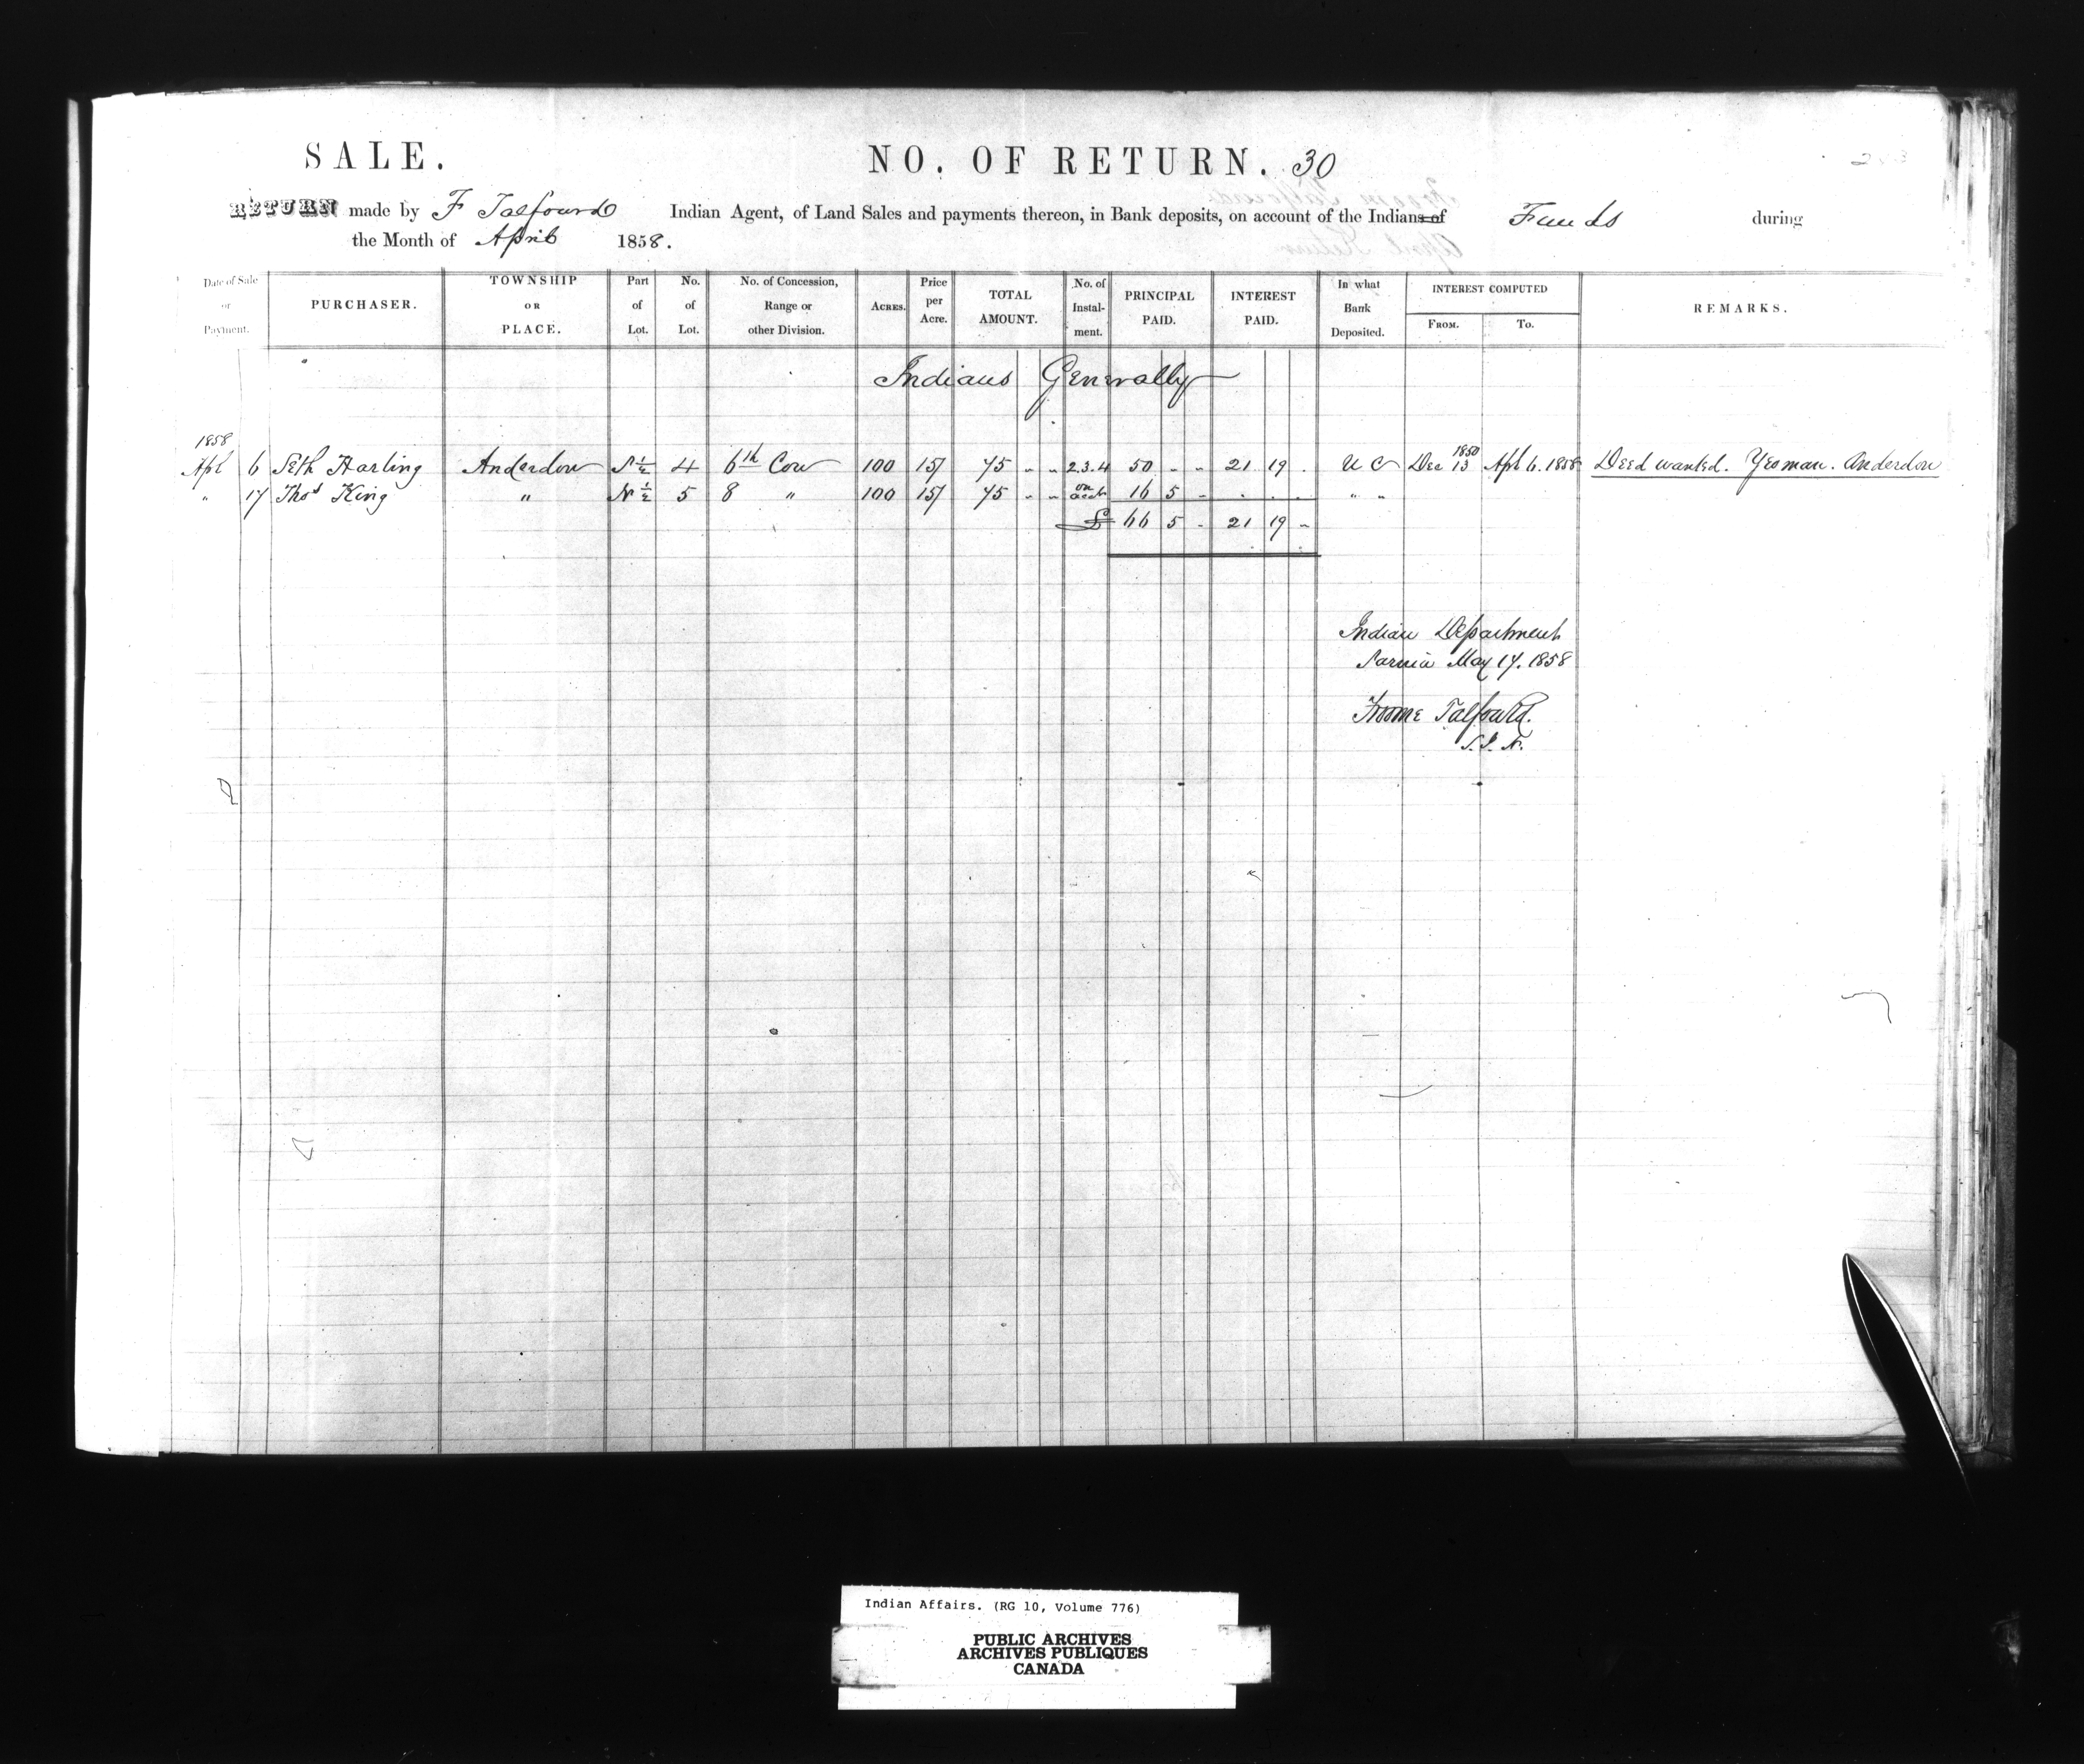 SALE. NO. OF RETURN. 30
RETURN made by F Talfourd Indian Agent, of Land Sales and payments thereon, in Bank deposits, on account of the Indians of Funds during
the Month of April 1858.
Date of Sale or Payment. PURCHASER. TOWNSHIP OR PLACE. Part of Lot. No. of Lot. No. of Concession, Range or other Division. ACRES. Price per Acre. TOTAL AMOUNT. No. of Instal-ment. PRINCIPAL PAID. INTEREST PAID. In what Bank Deposited. INTEREST COMPUTED FROM. TO. REMARKS.
Indians Generally
1858
Apl 6 Seth Harling Anderdon ½ 4 6th Con 100 15/ 75 " " 2.3.4 50 " " 21 19 . U C Dec 13 1850 Apl 6. 1858 Deed wanted. Yeoman. Anderdon
" 17 Thos King " N ½ 5 8 " 100 15/ 75 " " on acct 16 5 - . . . " "
£ 66 5 - 21 19 -
Indian Department
Sarnia May 17. 1858
Froome Talfourd.
Indian Affairs. (RG 10, Volume 776)
PUBLIC ARCHIVES
ARCHIVES PUBLIQUES
CANADA